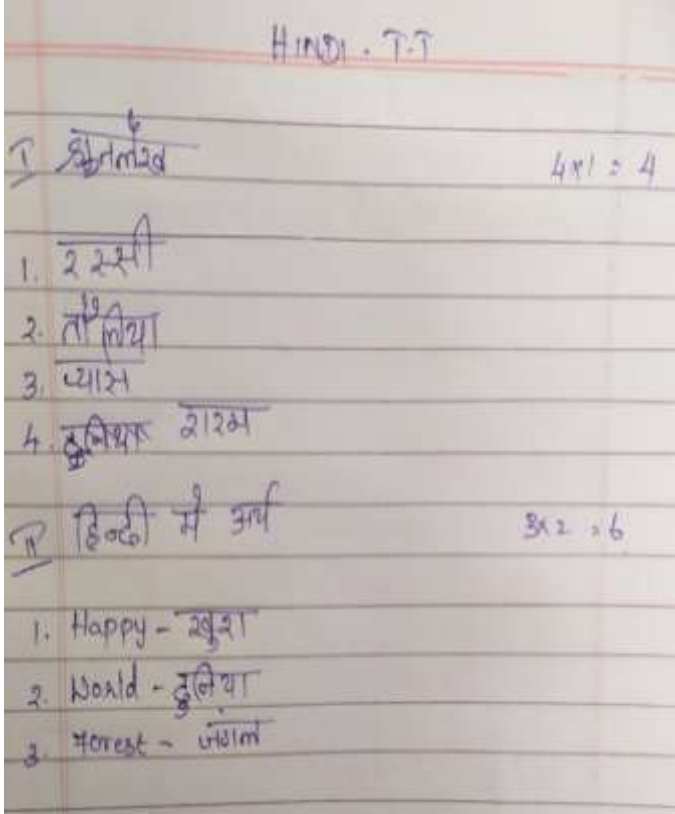 HINDI . T.T
I श्रुतलेख 4x1 = 4
1. रस्सी
2. तौलिया
3. प्यास
4. शरम
II हिन्दी में अर्थ 3x2 = 6
1. Happy - खुश
2. World - दुनिया
3. Forest - जंगल